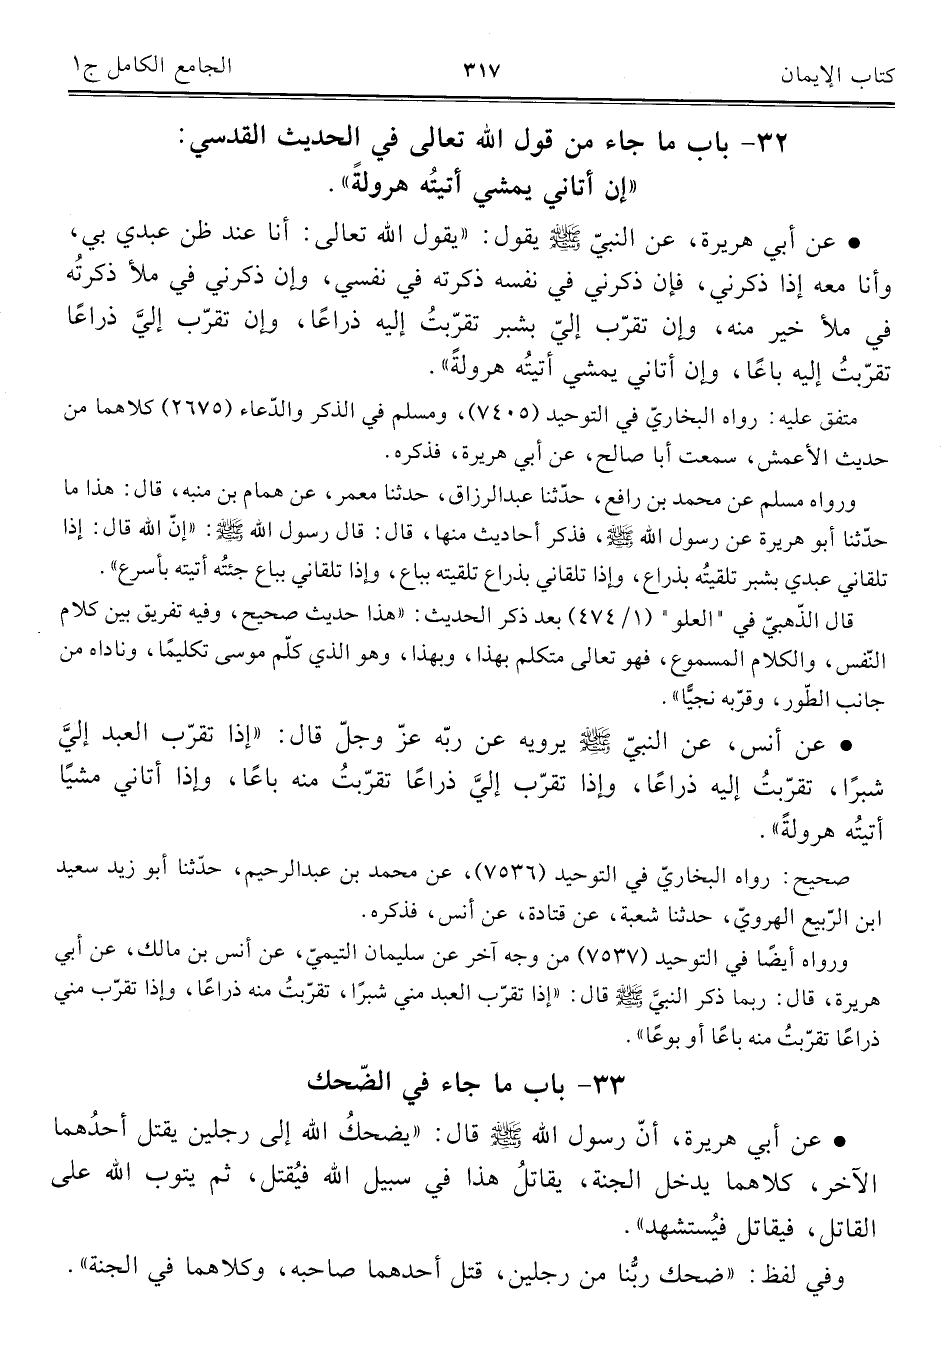 كتاب الإيمان ٣١٧ الجامع الكامل ج١
٣٢- باب ما جاء من قول الله تعالى في الحديث القدسي:
«إن أتاني يمشي أتيتُه هرولةً».
● عن أبي هريرة، عن النبيّ ﷺ يقول: «يقول الله تعالى: أنا عند ظن عبدي بي،
وأنا معه إذا ذكرني، فإن ذكرني في نفسه ذكرته في نفسي، وإن ذكرني في ملأ ذكرتُه
في ملأ خير منه، وإن تقرّب إليّ بشبر تقرّبتُ إليه ذراعًا، وإن تقرّب إليَّ ذراعًا
تقرّبتُ إليه باعًا، وإن أتاني يمشي أتيتُه هرولةً».
متفق عليه: رواه البخاريّ في التوحيد (٧٤٠٥)، ومسلم في الذكر والدّعاء (٢٦٧٥) كلاهما من
حديث الأعمش، سمعت أبا صالح، عن أبي هريرة، فذكره.
ورواه مسلم عن محمد بن رافع، حدّثنا عبدالرزاق، حدثنا معمر، عن همام بن منبه، قال: هذا ما
حدّثنا أبو هريرة عن رسول الله ﷺ، فذكر أحاديث منها، قال: قال رسول الله ﷺ: «إنّ الله قال: إذا
تلقاني عبدي بشبر تلقيتُه بذراع، وإذا تلقاني بذراع تلقيته بباع، وإذا تلقاني بباع جئتُه أتيته بأسرع».
قال الذّهبيّ في "العلو" (١/ ٤٧٤) بعد ذكر الحديث: «هذا حديث صحيح، وفيه تفريق بين كلام
النّفس، والكلام المسموع، فهو تعالى متكلم بهذا، وبهذا، وهو الذي كلّم موسى تكليمًا، وناداه من
جانب الطّور، وقرّبه نجيًّا».
● عن أنس، عن النبيّ ﷺ يرويه عن ربّه عزّ وجلّ قال: «إذا تقرّب العبد إليَّ
شبرًا، تقرّبتُ إليه ذراعًا، وإذا تقرّب إليَّ ذراعًا تقرّبتُ منه باعًا، وإذا أتاني مشيًا
أتيتُه هرولةً».
صحيح: رواه البخاريّ في التوحيد (٧٥٣٦)، عن محمد بن عبدالرحيم، حدّثنا أبو زيد سعيد
ابن الرّبيع الهرويّ، حدثنا شعبة، عن قتادة، عن أنس، فذكره.
ورواه أيضًا في التوحيد (٧٥٣٧) من وجه آخر عن سليمان التيميّ، عن أنس بن مالك، عن أبي
هريرة، قال: ربما ذكر النبيَّ ﷺ قال: «إذا تقرّب العبد مني شبرًا، تقرّبتُ منه ذراعًا، وإذا تقرّب مني
ذراعًا تقرّبتُ منه باعًا أو بوعًا».
٣٣- باب ما جاء في الضّحك
● عن أبي هريرة، أنّ رسول الله ﷺ قال: «يضحكُ الله إلى رجلين يقتل أحدُهما
الآخر، كلاهما يدخل الجنة، يقاتلُ هذا في سبيل الله فيُقتل، ثم يتوب الله على
القاتل، فيقاتل فيُستشهد».
وفي لفظ: «ضحك ربُّنا من رجلين، قتل أحدهما صاحبه، وكلاهما في الجنة».